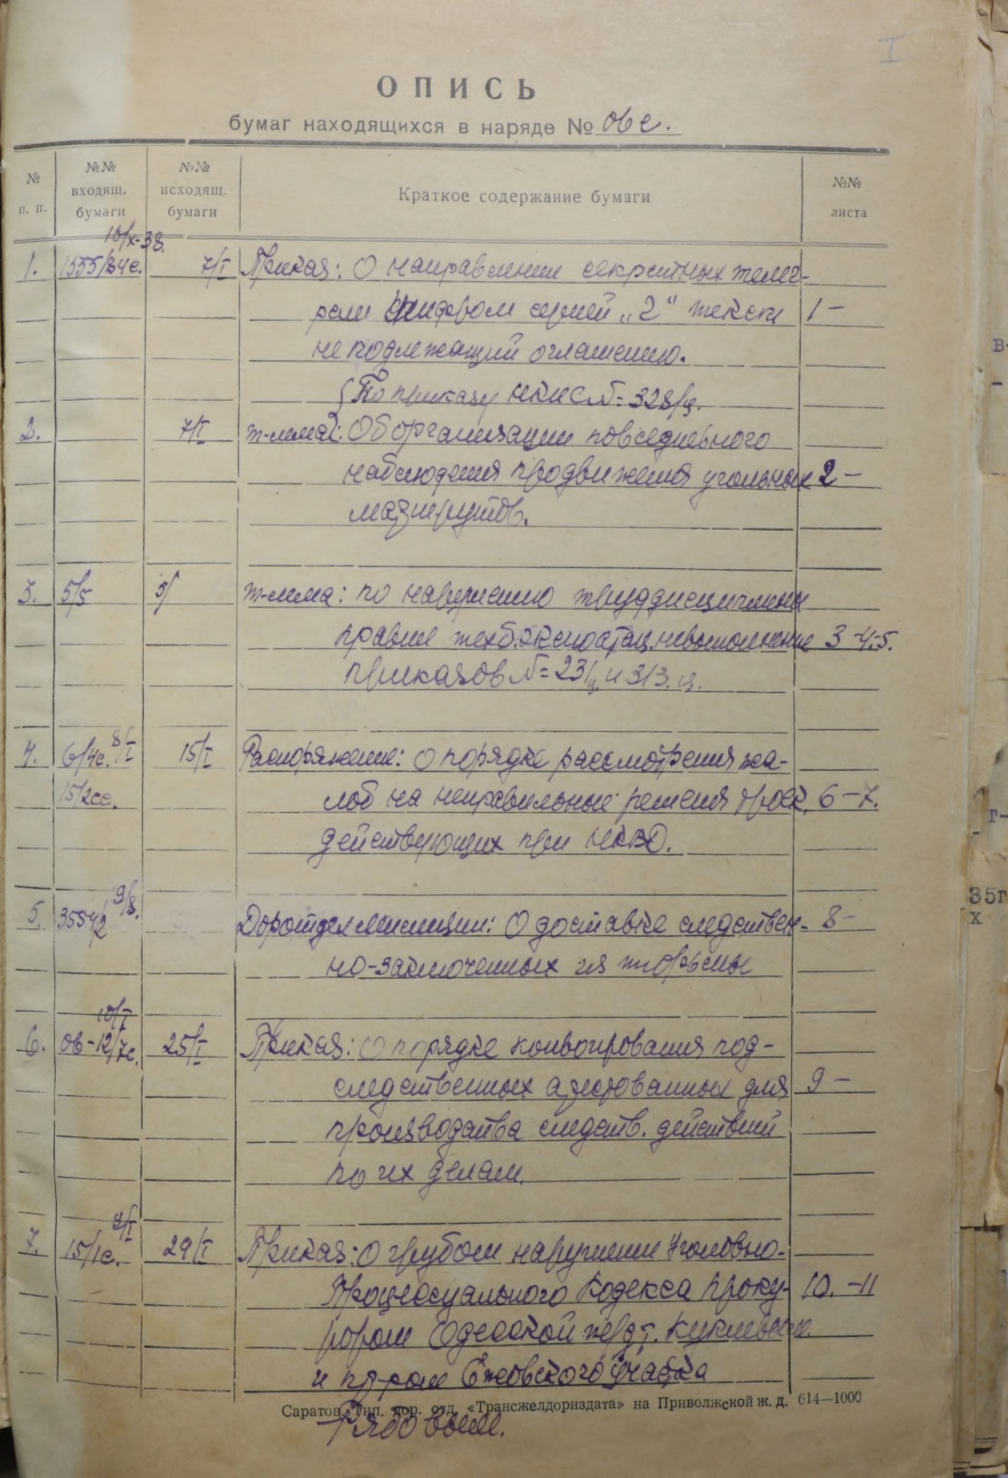 I
ОПИСЬ
бумаг находящихся в наряде № ове.
№ п. п.
№№ входящ. бумаги
№№ исходящ. бумаги
Краткое содержание бумаги
№№ листа
10/X-38.
1. 1555/34с. 7/I Приказ: О направлении секретных телег-
рам Шифром серией „2" текст 1-
не подлежащий оглашению.
(По приказу НКПС №=328/ц.
2. 7/I т-мма: Об организации повседневного
наблюдения продвижения угольных 2-
маршрутов.
3. 5/5 5/ т-мма: по нарушению труддисциплины
правил техб. эксплоатац. невыполнение 3-4-5.
приказов №=23/ц и 313.ц.
4. 6/4с. 8/I 15/I Распоряжение: О порядке рассмотрения жа-
15/2сс. лоб на неправильные решения троек, 6-7.
действующих при НКВД.
9/8.
5. 3554/2 Доротдел милиции: О доставке следствен- 8-
но-заключенных из тюрьмы
10/I
6. ов-12/7с. 25/I Приказ: О порядке конвоирования под-
следственных арестованных для 9-
производства следств. действий
по их делам.
7. 15/1с. 29/I Приказ: О грубом нарушении Уголовно-
Процессуального Кодекса проку- 10.-11
рором Одесской ж/д т.
и пр-ром Ежовского участка
Рябовым.
Саратов, Тип. дор. отд. «Трансжелдориздата» на Приволжской ж. д. 614—1000
в-
-
г-
-
35г
х